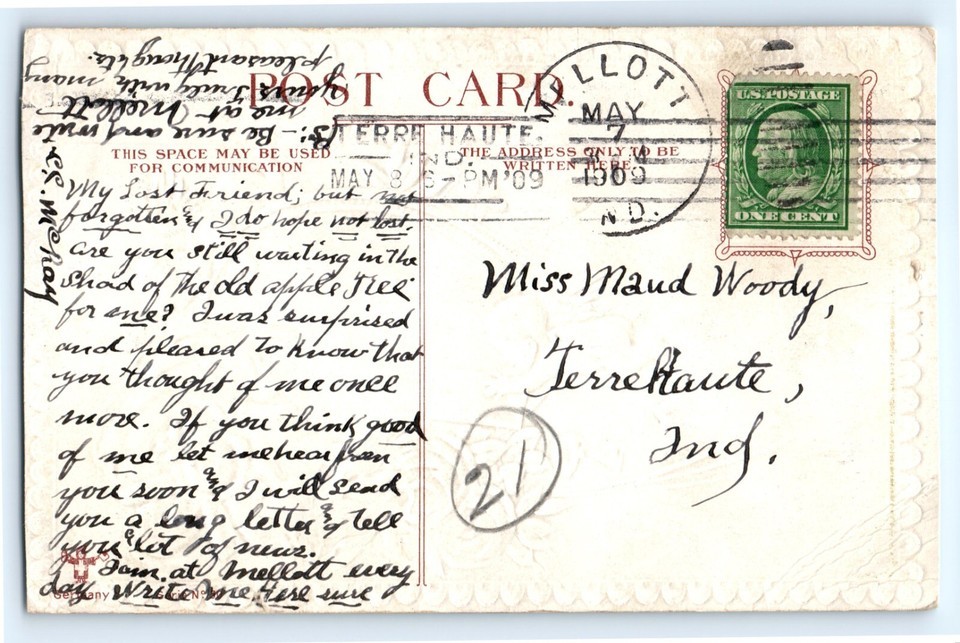 POST CARD.
THIS SPACE MAY BE USED
FOR COMMUNICATION
THE ADDRESS ONLY TO BE
WRITTEN HERE
MELLOTT
MAY
7
1909
IND.
TERRE HAUTE,
IND.
MAY 8 6-PM '09
U.S. POSTAGE
ONE CENT
My Lost Friend; but not
forgotten and I do hope not lost.
are you still waiting in the
Shaid of the old apple Tree
for me? I was surprised
and pleased to know that
you thought of me once
more. If you think good
of me let me hear from
you soon and I will send
you a long letter and Tell
you a lot of news.
I am at Mellott every
day. Write me fere sure
P.S:- Be sure and write
me at Mellott
yours Truly with many
pleasant thoughts.
Miss Maud Woody,
Terre Haute,
Ind.
21
Germany